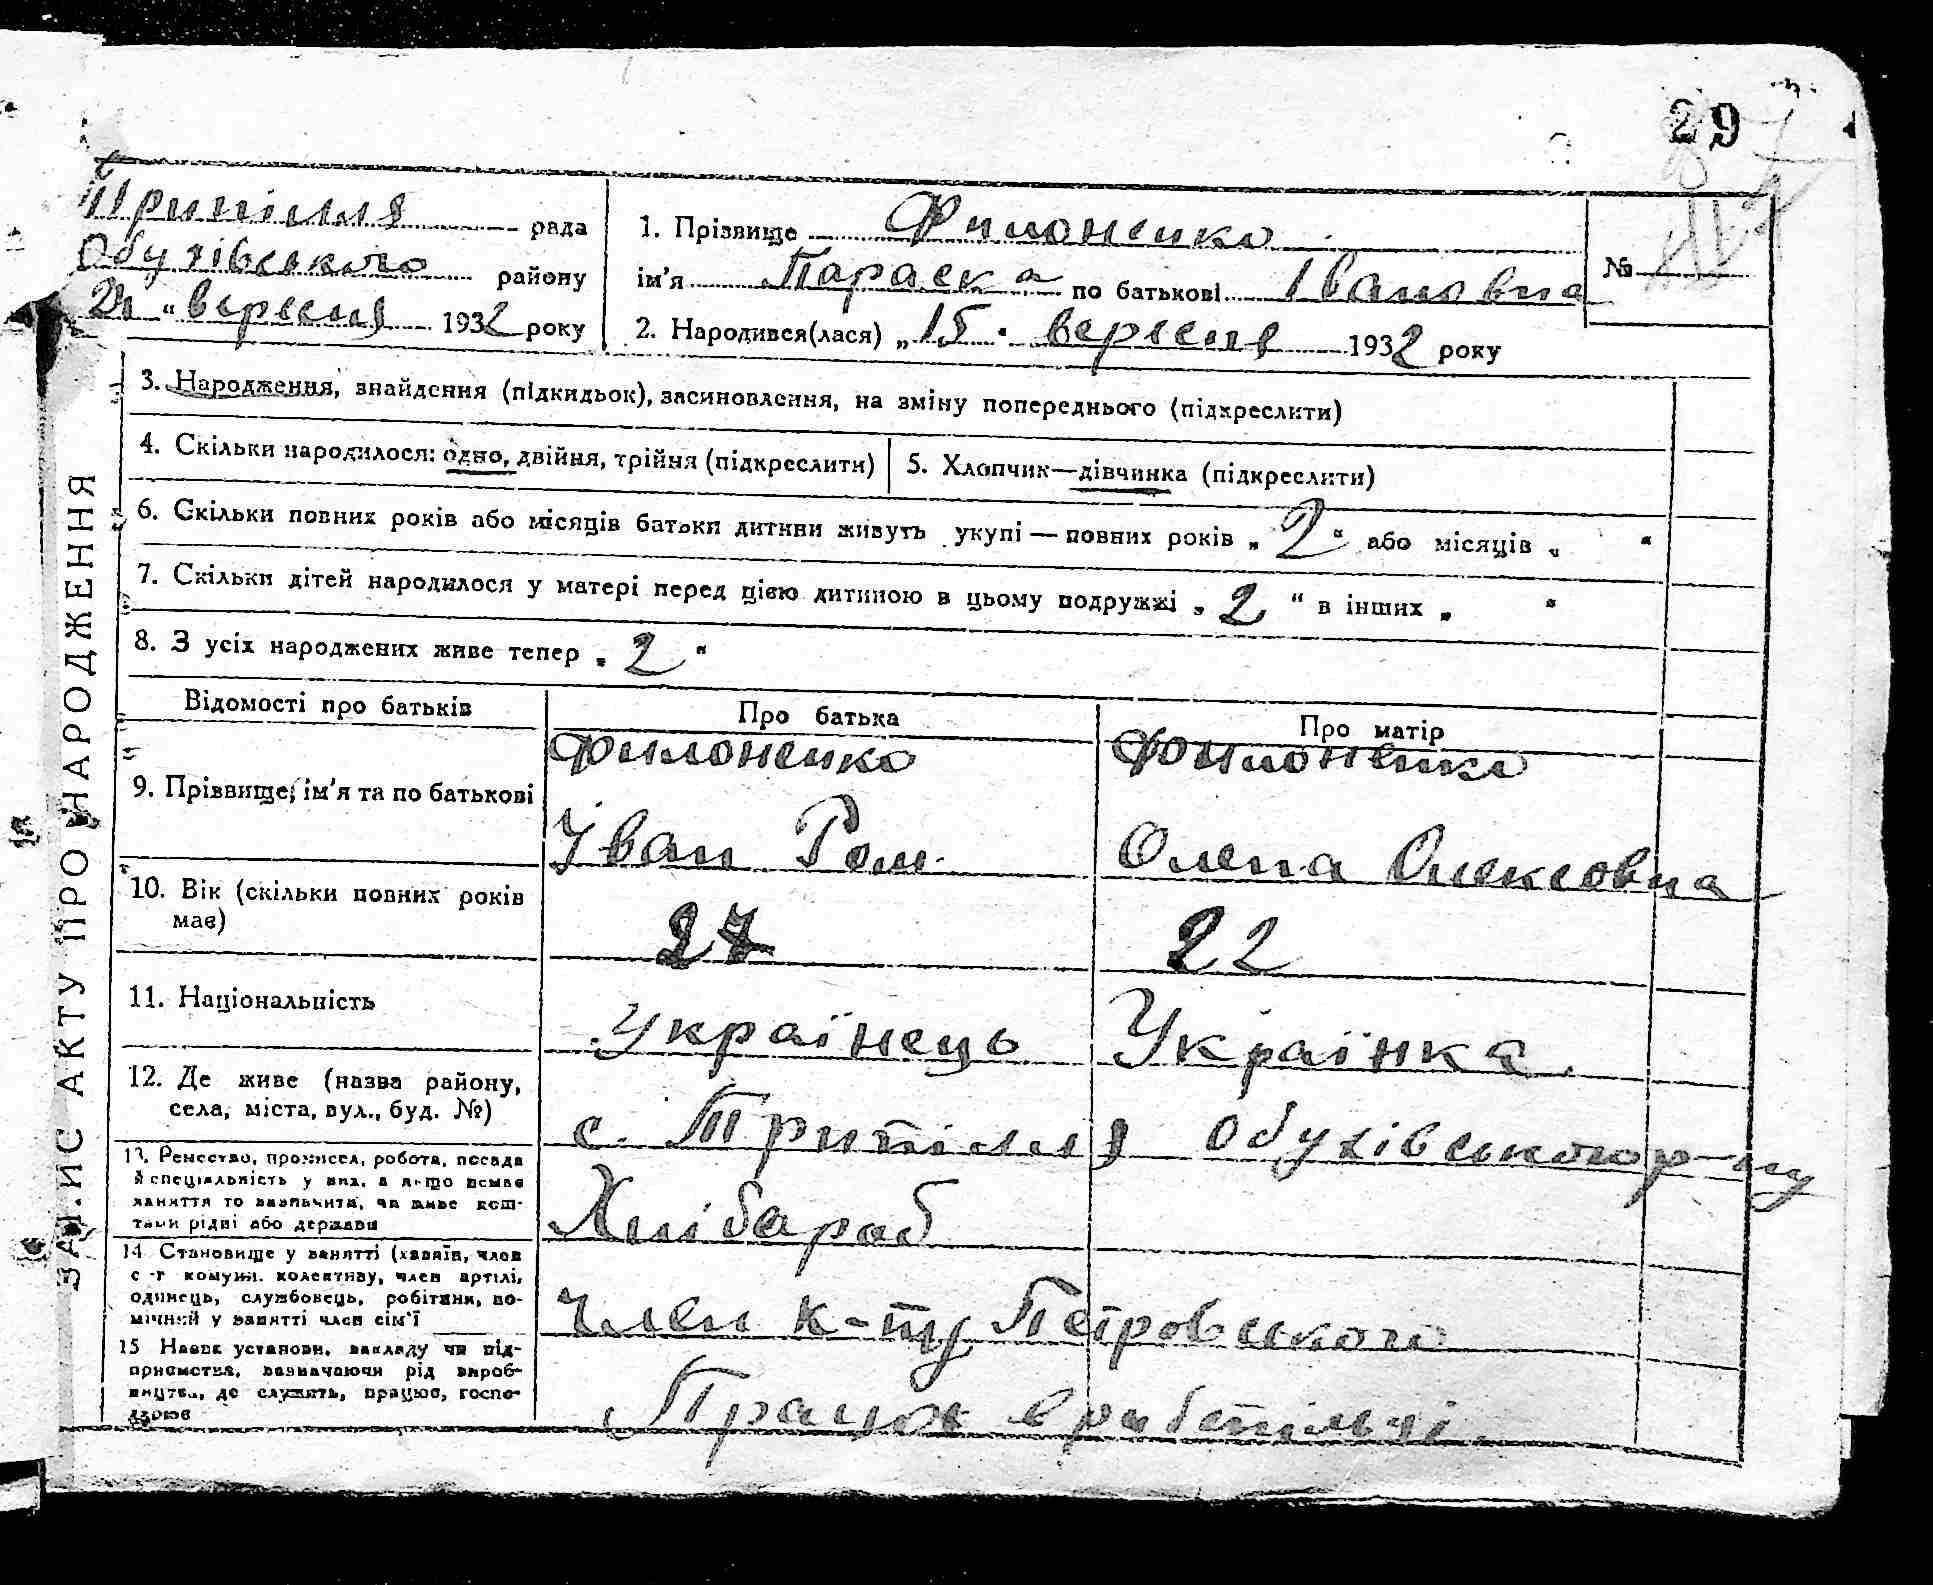 29
Трипілля рада
Обухівського району
"21" вересня 1932 року
1. Прізвище Филоненко
ім'я Параска по батькові Івановна
№
2. Народився(лася) „15" вересня 1932 року
3. Народження, знайдення (підкидьок), засиновлення, на зміну попереднього (підкреслити)
4. Скільки народилося: одно, двійня, трійня (підкреслити)
5. Хлопчик—дівчинка (підкреслити)
6. Скільки повних років або місяців батьки дитини живуть укупі — повних років „2" або місяців „ "
7. Скільки дітей народилося у матері перед цією дитиною в цьому подружжі „2" в інших „ "
8. З усіх народжених живе тепер „2"
Відомості про батьків
Про батька
Про матір
9. Прізвище, ім'я та по батькові
Филоненко
Іван Ром.
Филоненко
Олена Олексовна
10. Вік (скільки повних років
має)
27
22
11. Національність
Українець
Українка
12. Де живе (назва району,
села, міста, вул., буд. №)
с. Трипілля Обухівського р-ну
13. Ремество, промисел, робота, посада
й спеціяльність у них, а якщо немає
заняття то зазначити, чи живе кош-
тами рідні або держави
Хлібароб
14 Становище у занятті (хазяїн, член
с.-г комуни. колективу, член артілі,
одинець, службовець, робітник, по-
мічний у занятті член сім'ї
Член к-ту Петровського
15 Назва установи, закладу чи під-
приємства, зазначаючи рід вироб-
ництва, де служить, працює, госпо-
дарює
Працює в
ЗАПИС АКТУ ПРО НАРОДЖЕННЯ